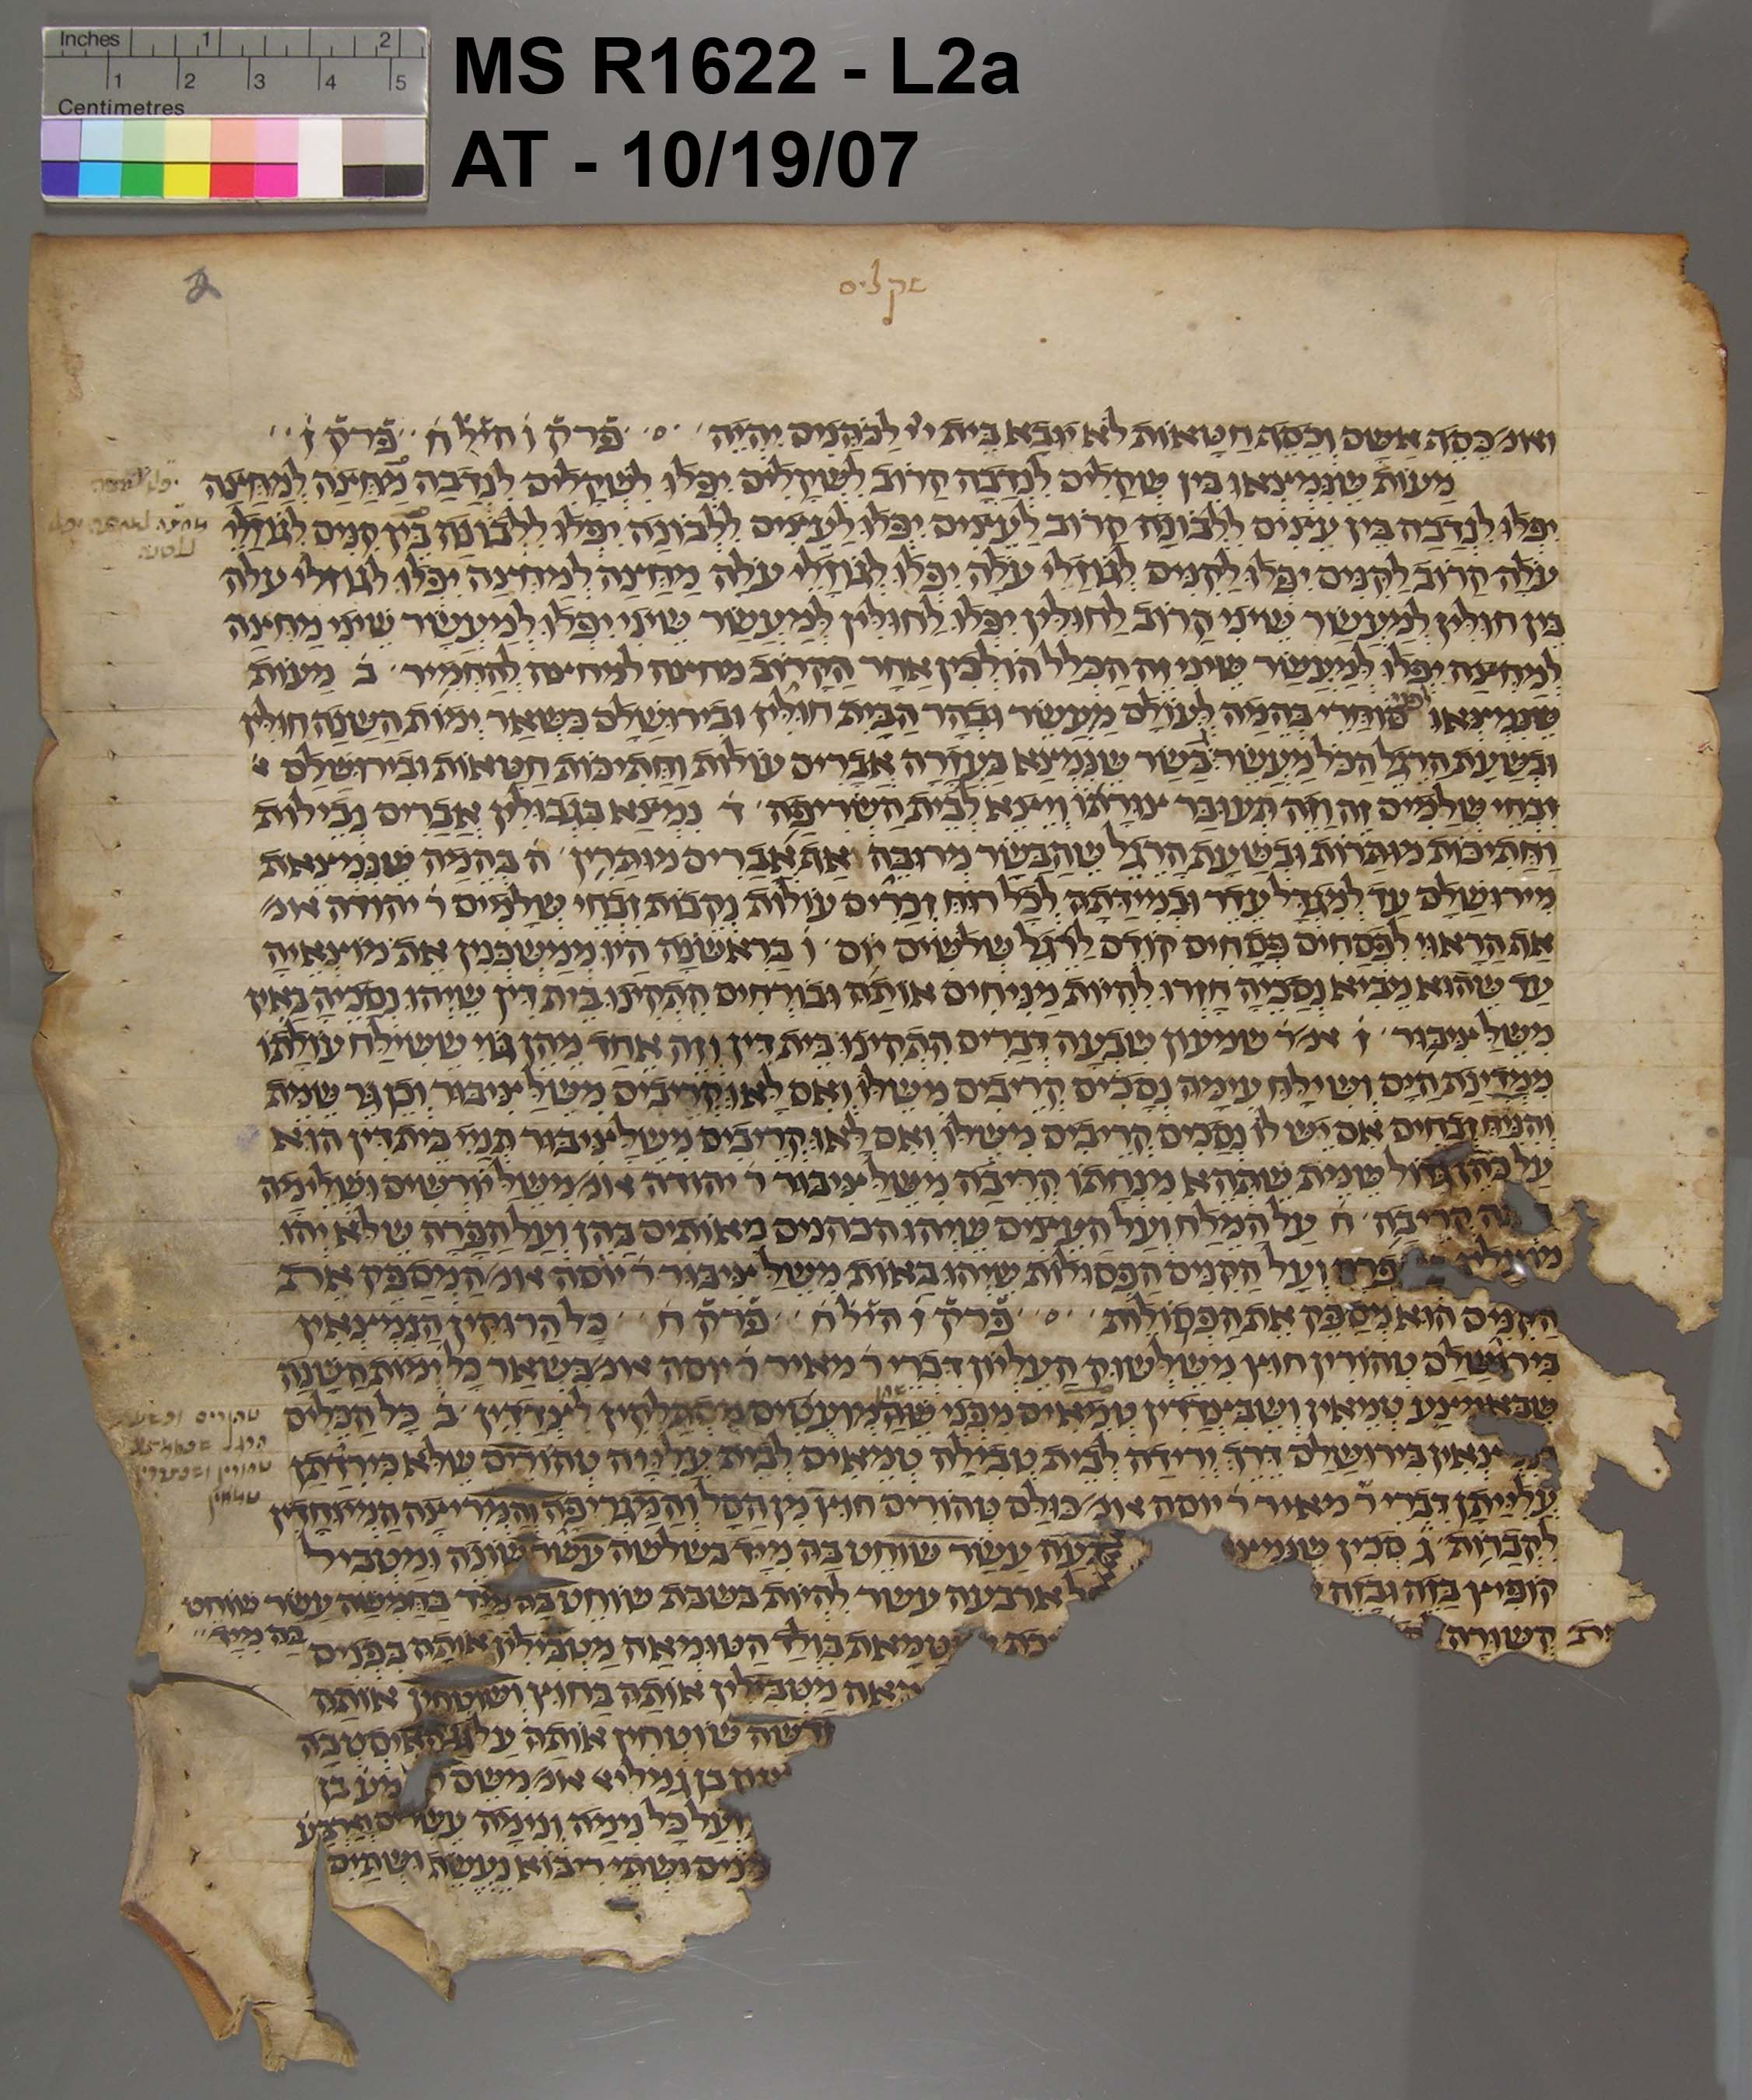 Inches 1 2
1 2 3 4 5
Centimetres
MS R1622 - L2a
AT - 10/19/07
2
שקלים
ואומ׳ כסף אשם וכסף חטאות לא יובא בית יי׳ לכהנים יהיה פרק ו׳ הל׳ ח׳ פרק ז׳
מעות שנמצאו בין שקלים לנדבה קרוב לשקלים יפלו לשקלים לנדבה מחצה למחצה
יפלו לנדבה בין עצים ללבונה קרוב לעצים יפלו לעצים ללבונה יפלו ללבונה בין קנים לגוזלי
עולה קרוב לקנים יפלו לקנים לגוזלי עולה יפלו לגוזלי עולה מחצה למחצה יפלו לגוזלי עולה
בין חולין למעשר שיני קרוב לחולין יפלו לחולין למעשר שיני יפלו למעשר שיני מחצה
למחצה יפלו למעשר שיני זה הכלל הולכין אחר הקרוב מחצה למחצה להחמיר ב מעות
שנמצאו לפני סוחרי בהמה לעולם מעשר ובהר הבית חולין ובירושלם בשאר ימות השנה חולין
ובשעת הרגל הכל מעשר בשר שנמצא בעזרה אברים עולות וחתיכות חטאות ובירושלם
זבחי שלמים זה וזה תעובר צורתו וייצא לבית השריפה ד נמצא בגבולין אברים נבילות
וחתיכות מותרות ובשעת הרגל שהבשר מרובה אף אברים מותרין ה בהמה שנמצאת
מירושלם עד למגדל עדר ובמידתה לכל רוח זכרים עולות נקבות זבחי שלמים ר׳ יהודה אומ׳
את הראוי לפסחים פסחים קודם לרגל שלשים יום ו בראשונה היו ממשכנין את מוצאיה
עד שהוא מביא נסכיה חזרו להיות מניחים אותה ובורחים התקינו בית דין שיהו נסכיה באין
משל ציבור ז אמ׳ ר׳ שמעון שבעה דברים התקינו בית דין וזה אחד מהן גוי ששילח עולתו
ממדינת הים ושילח עימה נסכים קריבים משלו ואם לאו קריבים משל ציבור וכן גר שמת
והניח זבחים אם יש לו נסכים קריבים משלו ואם לאו קריבים משל ציבור תניי בית דין הוא
על כהן גדול שמת שתהא מנחתו קריבה משל ציבור ר׳ יהודה אומ׳ משל יורשים ושלימה
קריבה ח על המלח ועל העצים שיהו הכהנים נאותים בהן ועל הפרה שלא יהו
מועלין ועל הקנים הפסולות שיהו באות משל ציבור ר׳ יוסה אומ׳ המספק את
הקנים הוא מספק את הפסולות פרק ז׳ הל׳ ח׳ פרק ח׳ כל הרוקין הנמצאין
בירושלם טהורין חוץ משלשוק העליון דברי ר׳ מאיר ר׳ יוסה אומ׳ בשאר כל ימות השנה
שבאמצע טמאין ושבצדדין טמאים מפני שהמועטים מסתלקין לצדדין ב כל הכלים
בירושלם דרך ירידה לבית טבילה טמאים לבית עלייה טהורים שלא כירידתן
עליתן דברי ר׳ מאיר ר׳ יוסה אומ׳ כולם טהורים חוץ מן הסל והמגריפה והמריצה המיוחדין
לקברות ג סכין עשר שוחט בה מיד בשלשה עשר שונה ומטביל
קופיץ בזה ובזה ארבעה עשר להיות בשבת שוחט בה מיד בחמשה עשר שוחט
בה מיד
קשורה כת שטמאת בולד הטומאה מטבילין אותה בפנים
מטבילין אותה בחוץ ושוטחין אותה
שוטחין אותה על גג האיסטבה
בן גמליא אומ׳ משם
ועל כל נימה ונימה עשרים וארבע
ושתי ריבוא נעשה ושתים